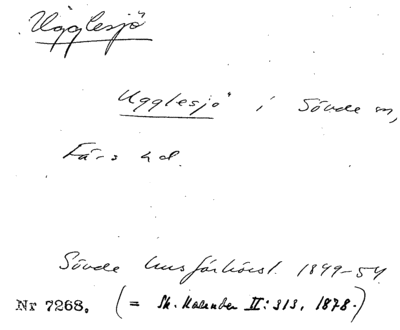 Ugglesjö
Ugglesjö i Sövde sn,
Färs hd.
Sövde husförhörsl. 1849-54
Nr 7268. (= Sk. Kalender II: 313, 1878.)